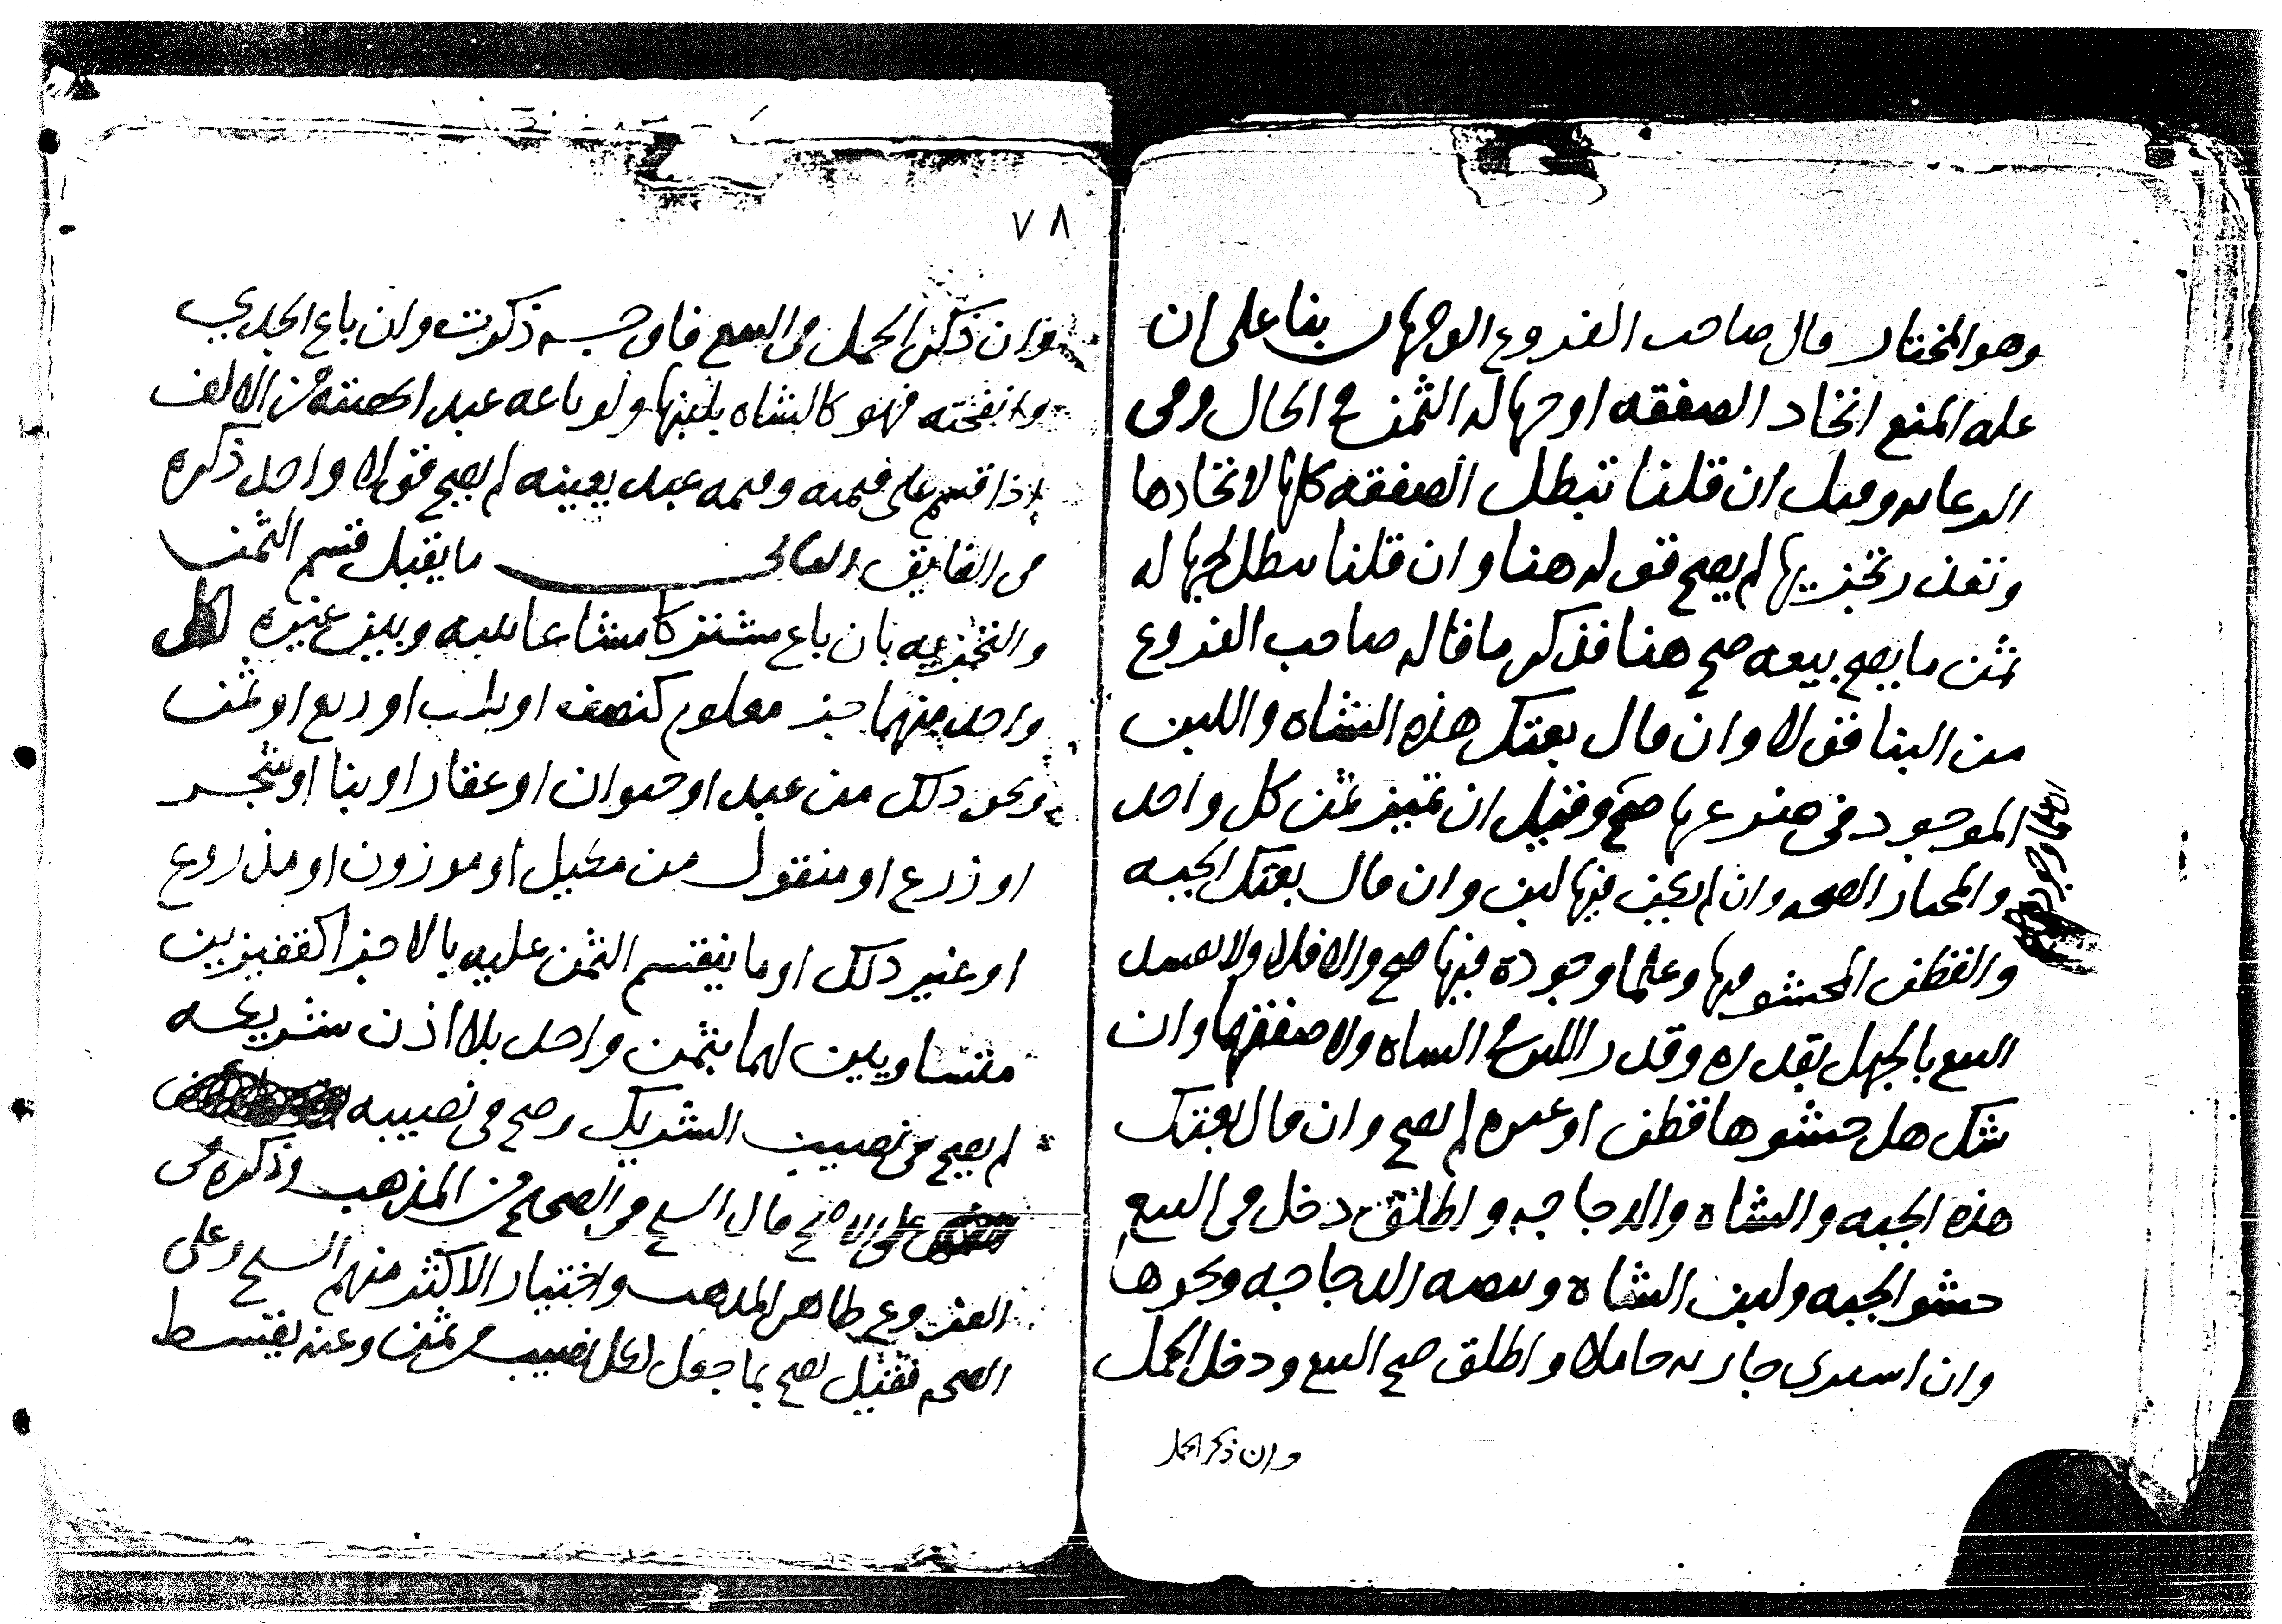 وهو المختار قال صاحب الفروع الوجهان بنا على ان
عله المنع اتحاد الصفقه او جهاله الثمن في الحال وفى
الرعايه وقيل ان قلنا تبطل الصفقه كلها لاتحادها
وتعذر تجزيها لم يصح قوله هنا وان قلنا تبطل لجهاله
ثمن ما يصح بيعه صح هنا فذكر ما قاله صاحب الفروع
من البنا قولا وان قال بعتك هذه الشاه واللبن
الموجود فى ضرعها صح وقيل ان تميز ثمن كل واحد
والمختار الصحه وان لم يكن فيها لبن وان قال بعتك الجبه
والقطن المحشو فيها وعلما وجوده فيها صح والا فلا ولا يفسد
البيع بالجهل بقدره وقدر اللبن في الشاه ولا صفتها وان
شك هل حشوها قطن او غيره لم يصح وان قال بعتك
هذه الجبه والشاه والدجاجه واطلق دخل فى البيع
حشو الجبه ولبن الشاه وبيضه الدجاجه ونحوها
وان اشترى جاريه حاملا واطلق صح البيع ودخل الحمل
وان ذكر الحمل
٧٨
وان ذكر الحمل فى البيع فاوجه ذكرت وان باع الجدي
وانفحته فهو كالشاه بلبنها ولو باعه عبدا من الالف
اذا قسم على قيمته وقيمه عبد بعينه لم يصح قولا واحد ذكره
فى الفايق الثانى ما يقبل قسم الثمن
والتجزيه بان باع مشتركا مشاعا بينه وبين غيره لكل
واحد منهما جز معلوم كنصف او ثلث او ربع او ثمن
ونحو ذلك من عبد او حيوان او عقار او بنا او شجر
او زرع او منقول من مكيل او موزون او مذروع
او غير ذلك او ما ينقسم الثمن عليه بالاجزا كقفيزين
متساويين لهما بثمن واحد بلا اذن شريكه
لم يصح فى نصيب الشريك وصح فى نصيبه
على الاصح قال الشيخ فى الصحيح من المذهب وذكره فى
الفروع ظاهر المذهب واختيار الاكثر منهم الشيخ وعلى
الصحه فقيل يصح بما جعل لكل نصيب من ثمن وعنه يقسط